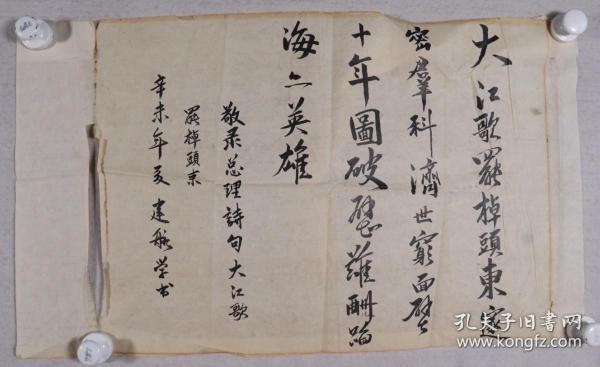 大江歌罷掉頭東邃
密羣科濟世窮面壁
十年圖破壁難酬蹈
海亦英雄
敬录总理詩句大江歌
罢掉頭東
辛未年夏建航学书
孔夫子旧书网
www.kongfz.com